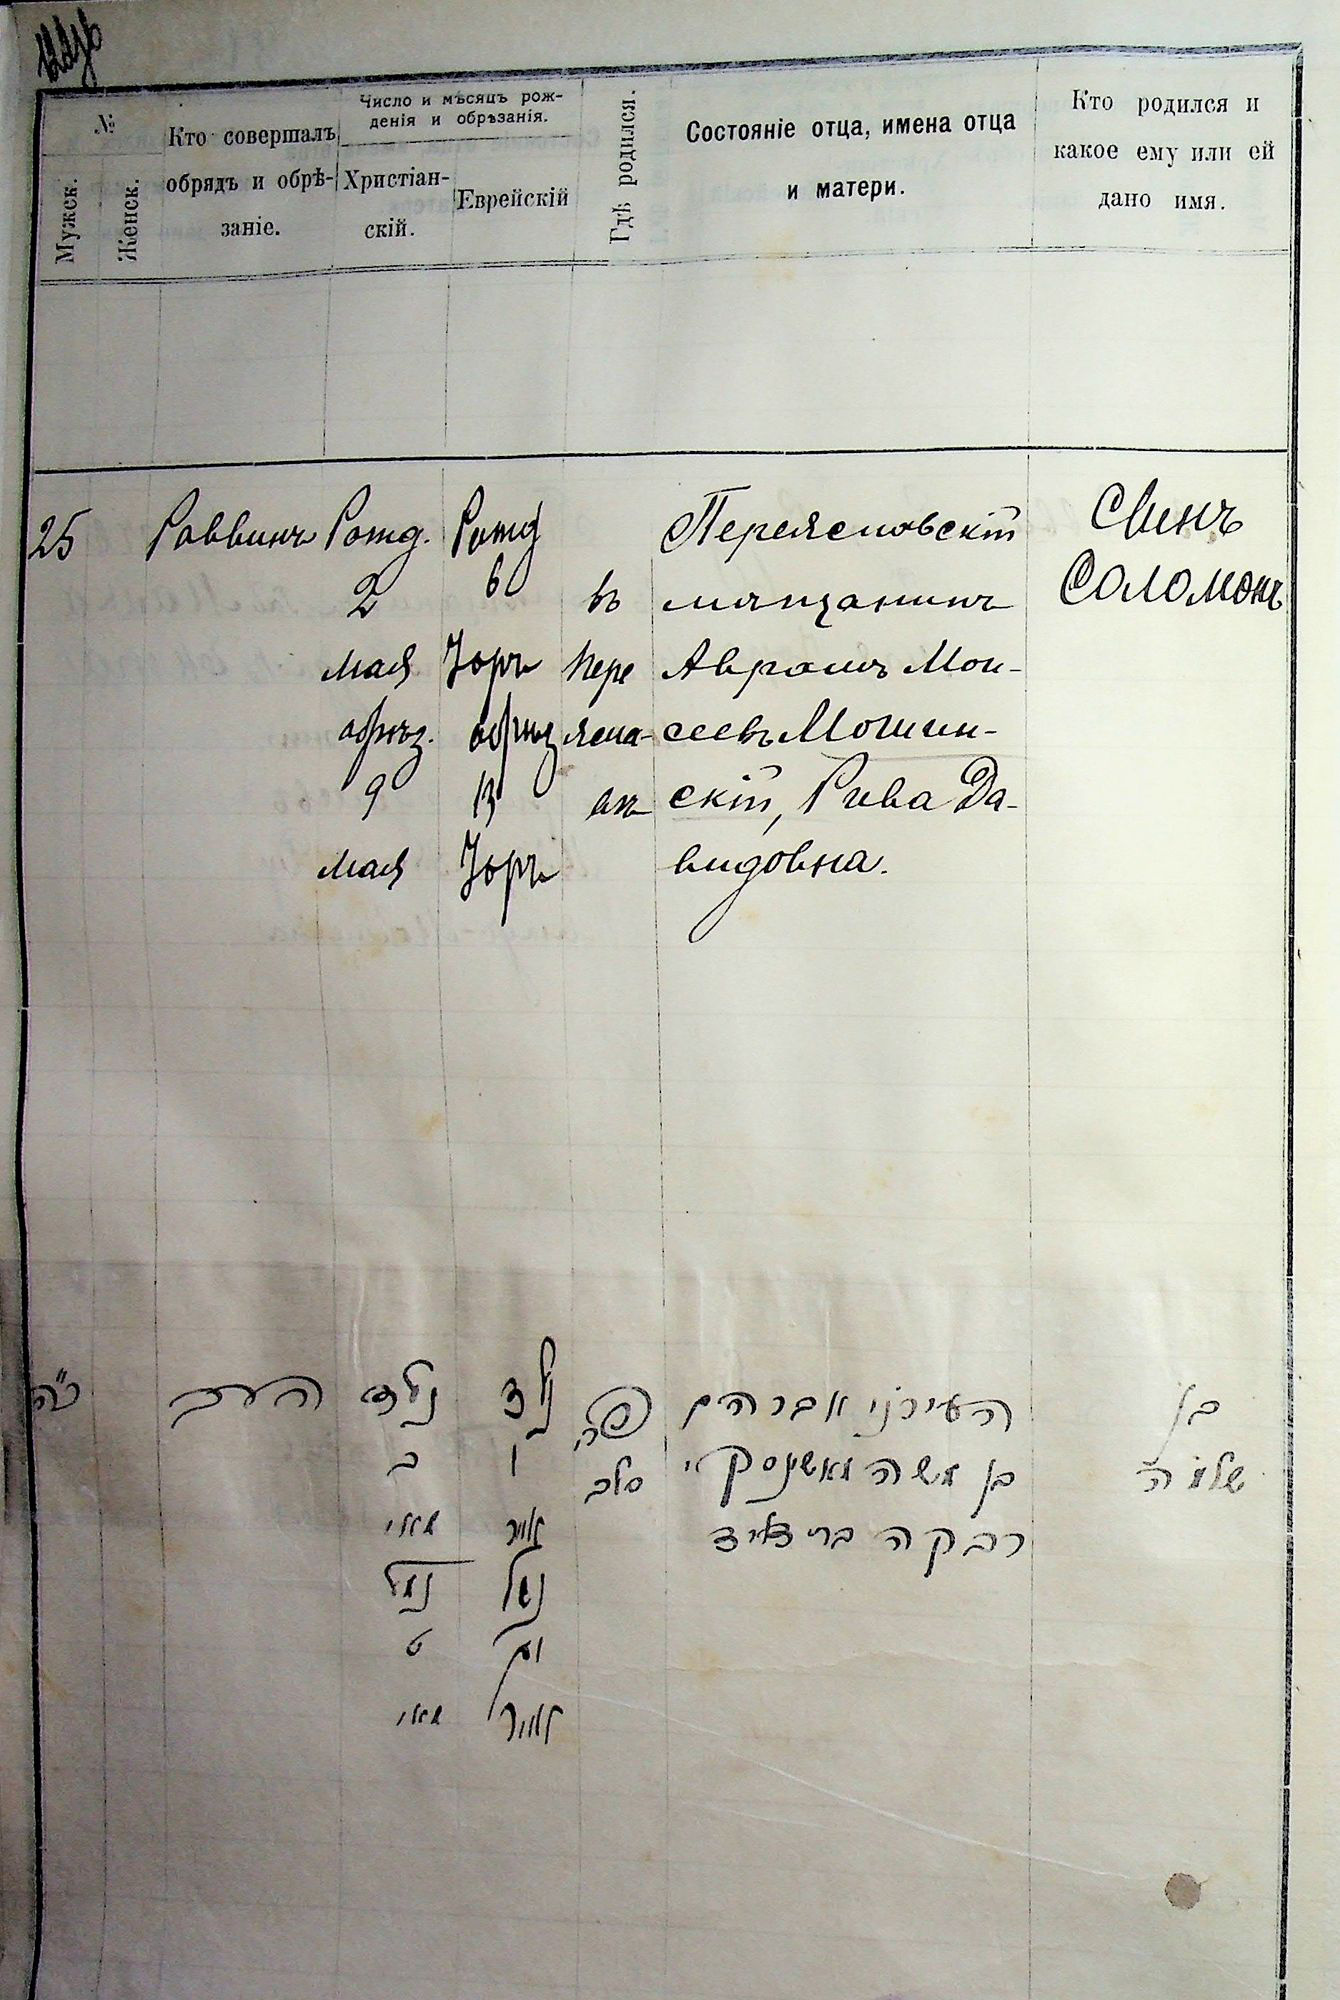 №
Мужск.
Женск.
Кто совершалъ
обрядъ и обрѣ-
заніе.
Число и мѣсяцъ рож-
денія и обрѣзанія.
Христіан-
скій.
Еврейскій
Гдѣ родился.
Состояніе отца, имена отца
и матери.
Кто родился и
какое ему или ей
дано имя.
25
Раввинъ
Рожд.
2
мая
обрѣз.
9
мая
Рожд
6
Іоръ
обрѣз
13
Іоръ
въ
Пере
ясла-
вѣ
Переяславскій
мѣщанинъ
Аврамъ Мои-
сеевъ Мошин-
скій, Рива Да-
видовна.
Свинъ
Соломонъ
כ"ה
הרב
נולד
ב
מאי
נמול
ט
מאי
נולד
ו
אייר
נמול
אייר
פה
העירני אברהם
בן משה מאשינסקי
רבקה בת דאויד
בן
שלמה